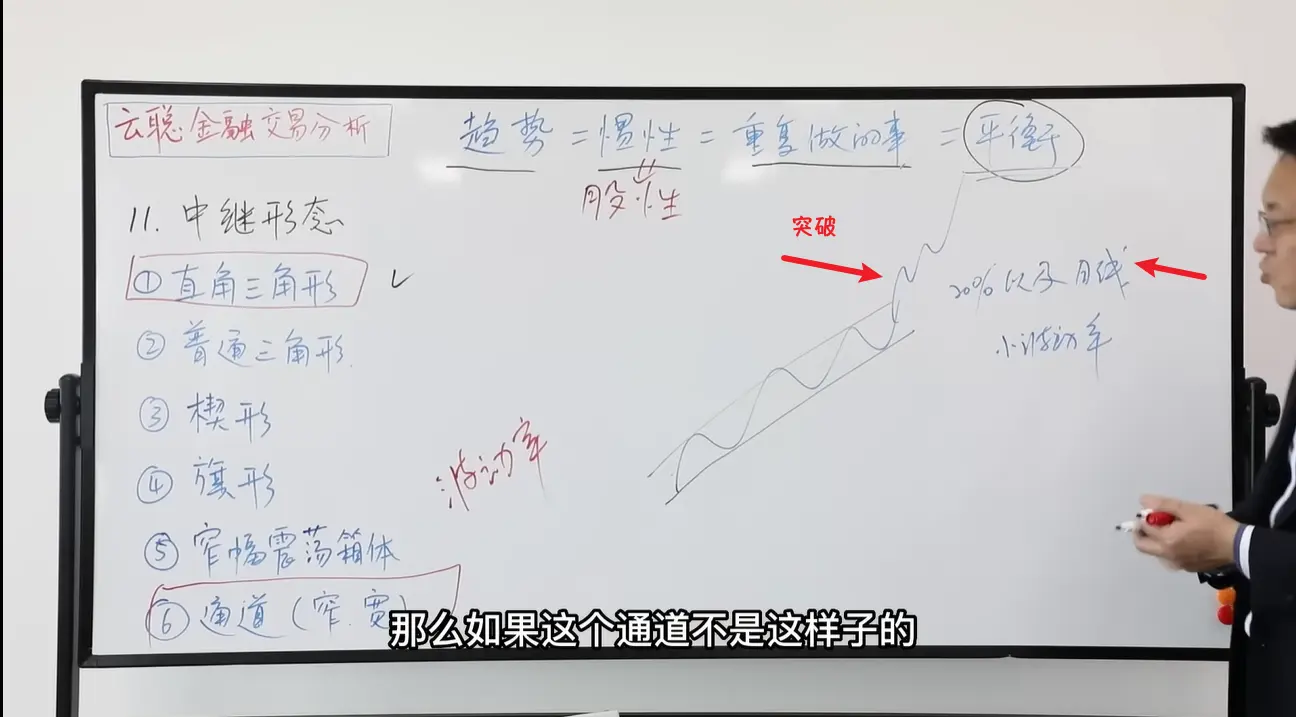 云聪·金融交易分析
趋势=惯性=重复做的事=平衡
股性
11.中继形态
①直角三角形 ✓
②普通三角形
③楔形
④旗形
⑤窄幅震荡箱体
⑥通道(窄.宽)
波动率
突破
20%以及月线
小波动率
那么如果这个通道不是这样子的